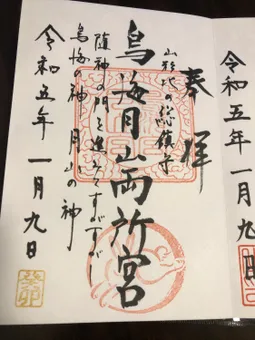 令和五年 一月九日
奉拝
山形北の総鎮守
鳥海月山両所宮
随神の門を進みてすがすがし
鳥海の神 月山の神
令和五年 一月九日
癸卯